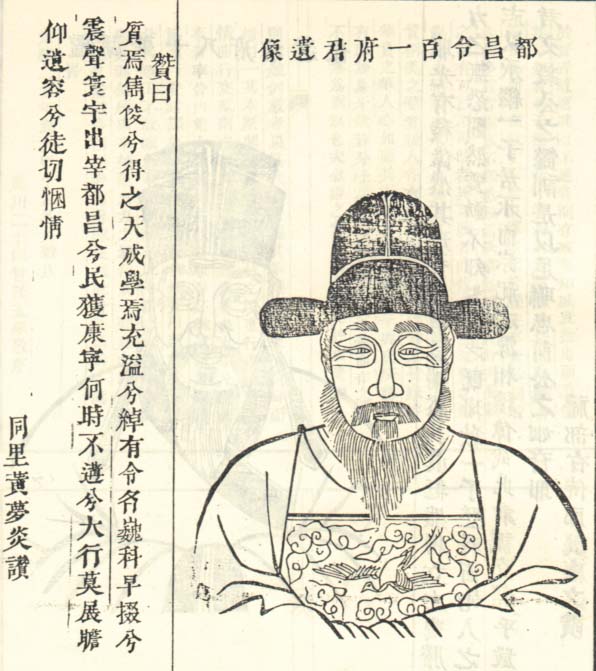 都昌令百一府君遺像
贊曰
質焉儁俊兮得之天成學焉充溢兮綽有令名巍科早掇兮
震聲寰宇出宰都昌兮民獲康寧何時不遭兮大行莫展瞻
仰遺容兮徒切悃情
同里黃夢炎讚